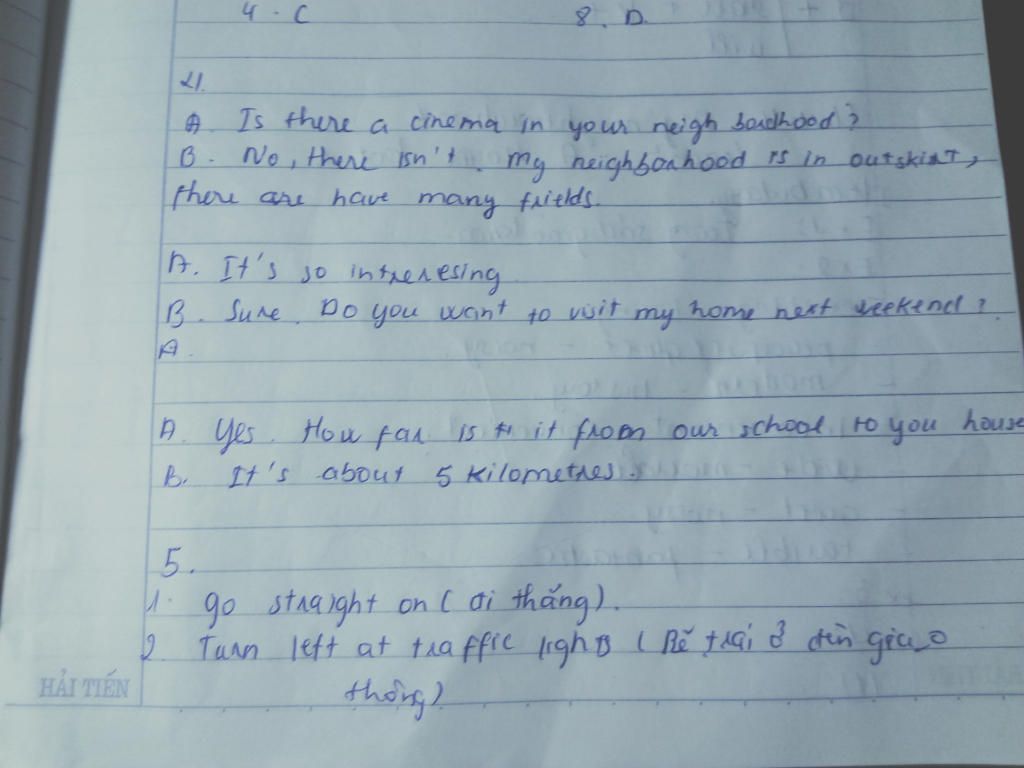 4. C 8. D
4.
A. Is there a cinema in your neigh bourhood?
B. No, there isn't. my neighborhood is in outskirt,
there are have many frields.
A. It's so intreresing
B. Sure. Do you want to visit my home next weekend?
A.
A. Yes. How far is it from our school to you house
B. It's about 5 kilometres.
5.
1. go straight on (đi thẳng).
2 Turn left at traffic lights (Rẽ trái ở đèn giao
thông)
HẢI TIẾN